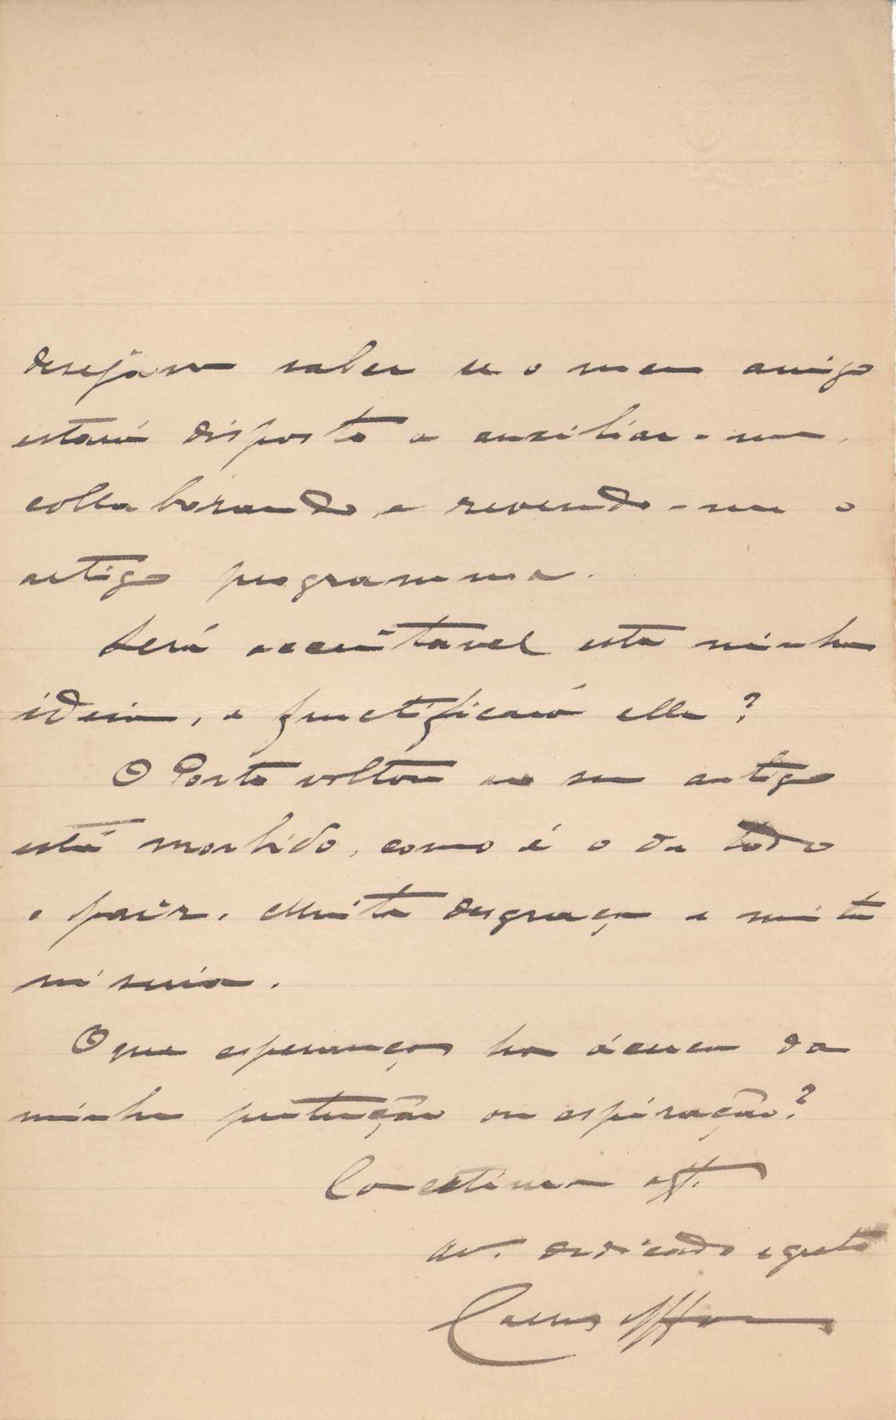 desejava saber se o meu amigo
estará disposto a auxiliar-me,
collaborando e revendo-me o
artigo programma.
Será acceitavel esta minha
ideia, e fructificará ella?
O Porto voltou ao seu antigo
está morbido, como é o de todo
o paiz. Muita desgraça e muita
miseria.
O que esperanças ha ácerca da
minha pretenção ou aspiração?
Com estima
am. dedicado e grato